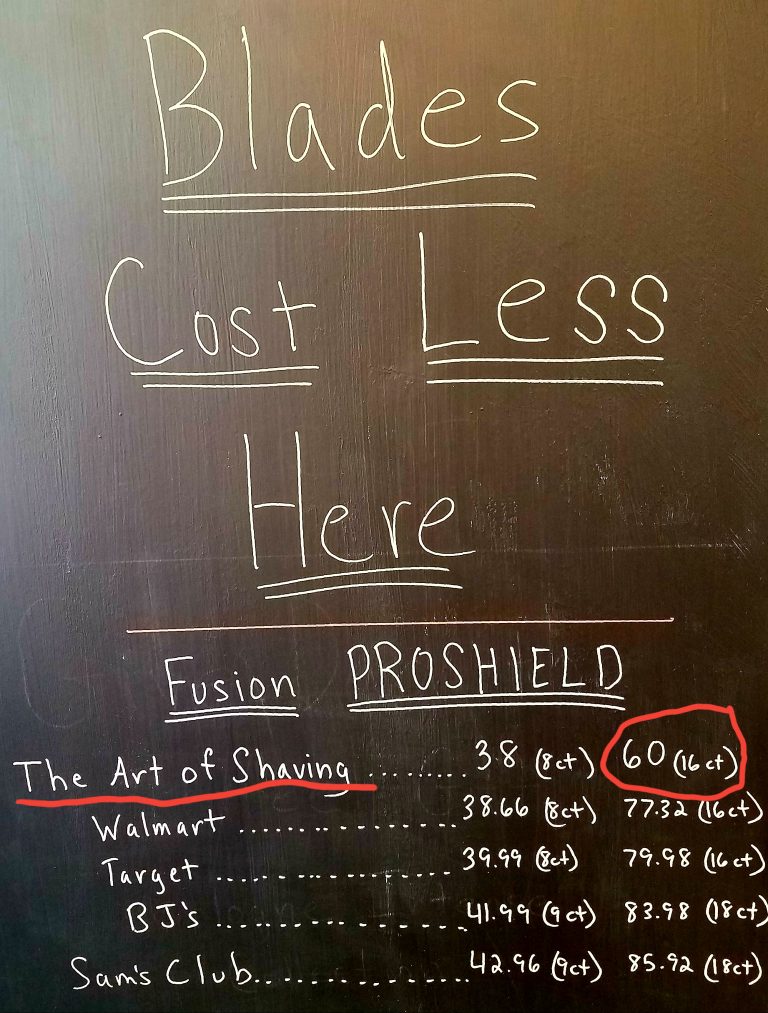 Blades
Cost Less
Here
Fusion PROSHIELD
The Art of Shaving ......... 38 (8ct) 60 (16 ct)
Walmart ................ 38.66 (8ct) 77.32 (16ct)
Target ................ 39.99 (8ct) 79.98 (16ct)
BJ's ................ 41.99 (9ct) 83.98 (18ct)
Sam's Club ................ 42.96 (9ct) 85.92 (18ct)